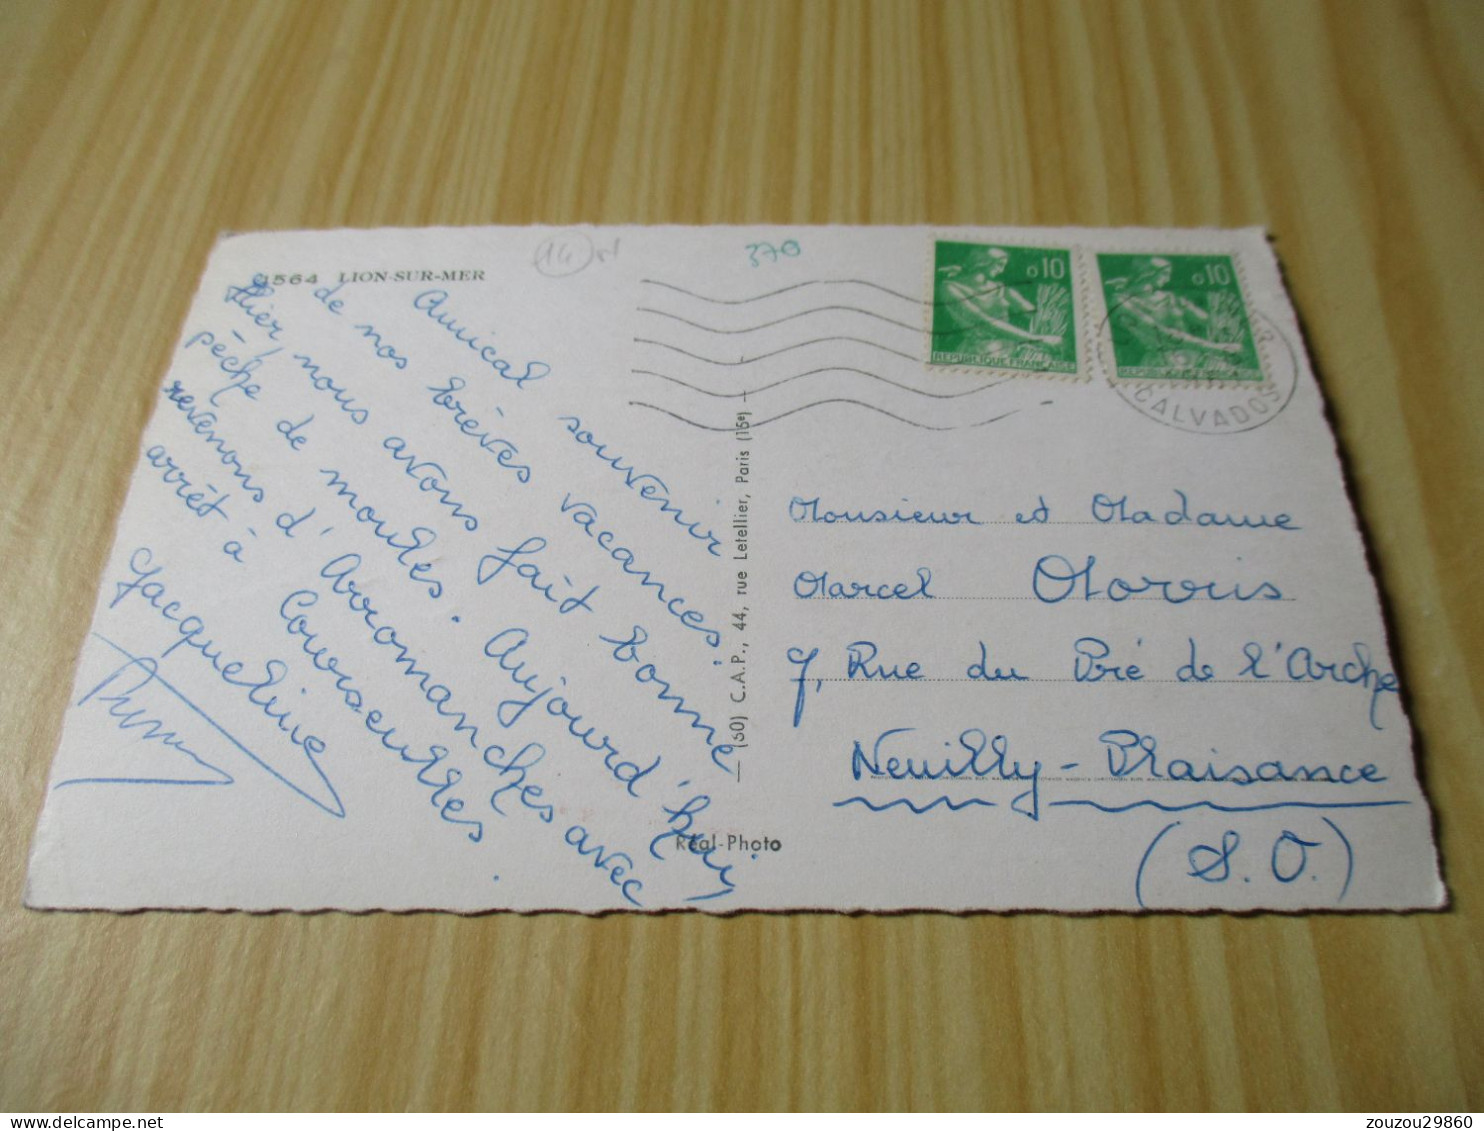 4564 LION-SUR-MER
14
370
Amical souvenir
de nos brèves vacances.
Hier nous avons fait bonne
pêche de moules. Aujourd'hui
revenons d'Arromanches avec
arrêt à Courseulles.
Jacqueline
0,10
REPUBLIQUE FRANÇAISE
0,10
CALVADOS
— (50) C.A.P., 44, rue Letellier, Paris (15e) —
Réal-Photo
Monsieur et Madame
Marcel Morris
7, Rue du Pré de l'Arche
Neuilly-Plaisance
(S.O.)
zouzou29860